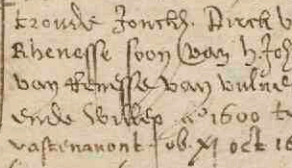 troude Jonckh. Dirck v
Rhenesse soon (van h. Joh
van Renesse van Wulve
ende Willep aº 1600 t
vastenavont. ob. XI oct 16